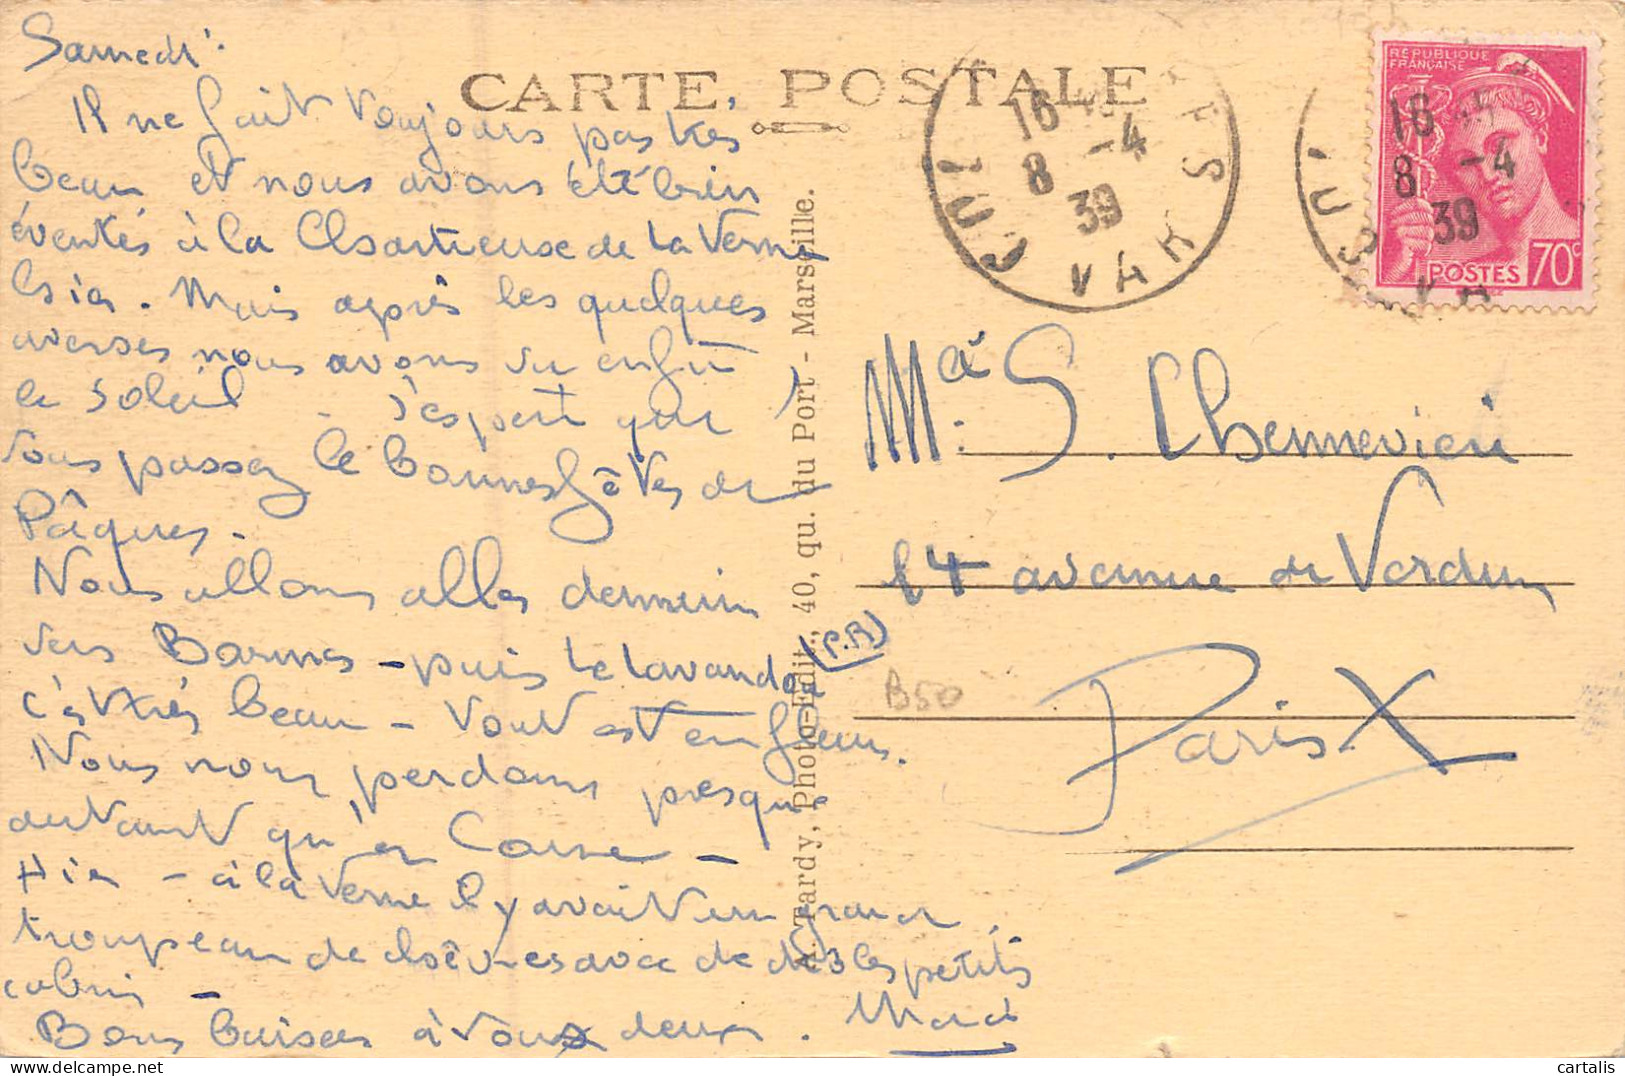 Samedi.
CARTE POSTALE
Il ne fait toujours pas très
beau et nous avons été bien
éventés à la Chartreuse de La Verne
hier. Mais après les quelques
averses nous avons vu enfin
le soleil - J'espère que
vous passez de bonnes fêtes de
Pâques.
Nous allons aller demain
vers Bormes - puis Le Lavandou (P.R)
c'est très beau - Tout est en fleurs.
Nous nous perdons presque
autant qu'en Corse -
Hier - à la Verne il y avait un grand
troupeau de chèvres avec de petits
cabris -
Bons baisers à vous deux.
A. Tardy, Photo-Edit., 40, qu. du Port - Marseille.
16
8 -4
39
VAR
RÉPUBLIQUE
FRANÇAISE
16
8 -4
39
VA
POSTES 70c
S. Chennevière
14 avenue de Verdun
Paris X
B50
cartalis